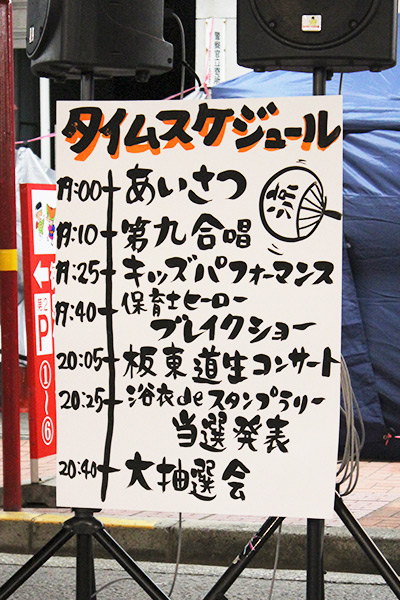 警察官立寄所
タイムスケジュール
祭
19:00 あいさつ
19:10 第九合唱
19:25 キッズパフォーマンス
19:40 保育士ヒーロー
ブレイクショー
20:05 板東道生コンサート
20:25 浴衣deスタンプラリー
当選発表
20:40 大抽選会
第2
P
①〜⑥